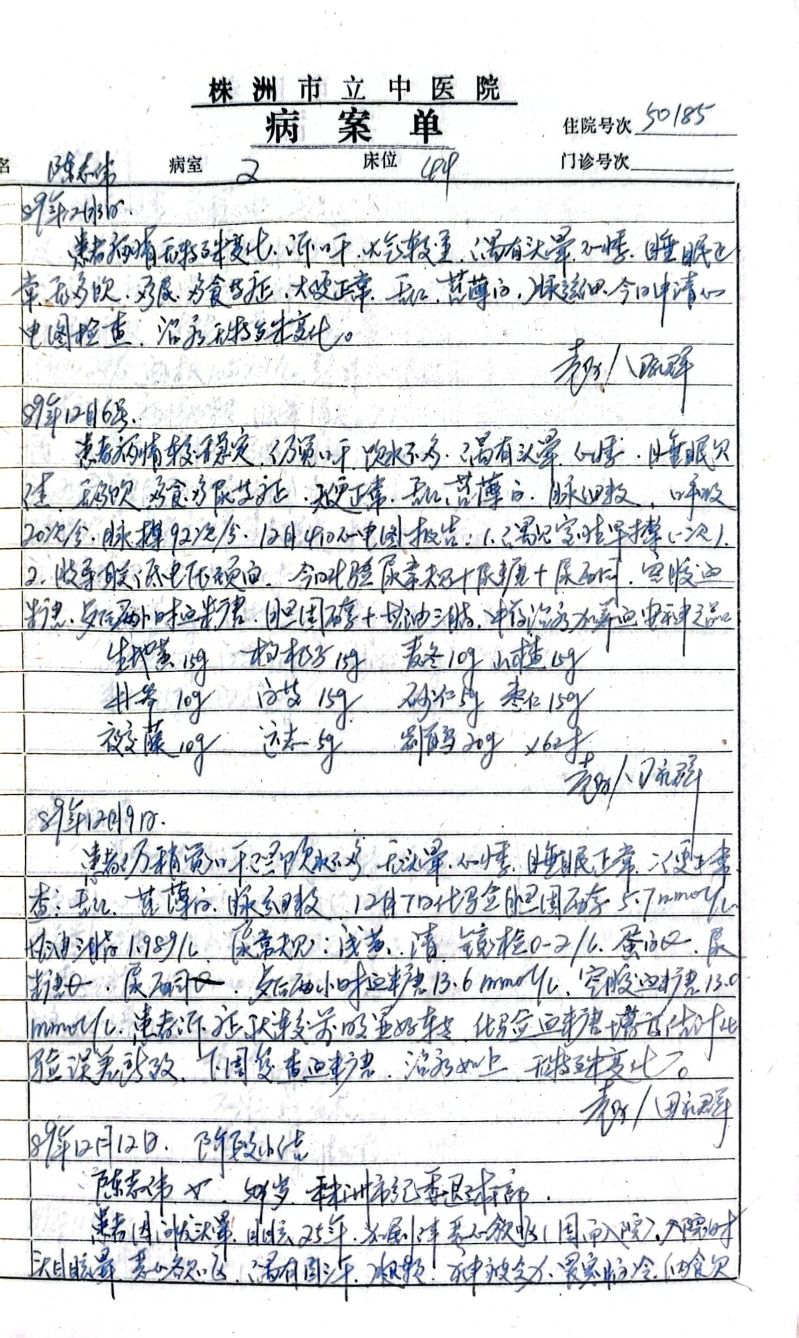 株洲市立中医院
病案单
住院号次 50185
名 陈志伟 病室 2 床位 44 门诊号次
89年12月3日.
患者病情无特殊变化,诉口干,火气较重,偶有头晕、心悸,睡眠正
常,无多饮、多尿、多食等症,大便正常,舌红,苔薄白,脉弦细,今日申请心
电图检查,治疗无特殊变化。
89年12月6号.
患者病情较稳定,仍觉口干,饮水不多,偶有头晕,心悸,睡眠欠
佳,无多饮、多食多尿等症,大便正常,舌红,苔薄白,脉细数,呼吸
20次/分,脉搏92次/分,12月4日心电图报告:1.偶见室性早搏(一次).
2.肢导联低电压倾向,今日化验尿常规+尿糖+尿酮,空腹血
糖,餐后两小时血糖,胆固醇+甘油三脂,中药治疗
生地黄15g 枸杞子15g 麦冬10g 山楂15g
丹参10g 15g 砂仁5g 枣仁15g
夜交藤10g 远志5g 20g
89年12月9日.
患者仍稍觉口干,但饮水不多,无头晕、心悸,睡眠正常,二便正常
查:舌红,苔薄白,脉细数,12月7日化验胆固醇5.7mmol/L
甘油三脂1.989/L,尿常规:浅黄,清,镜检0-2/L,蛋白⊖,尿
糖⊖,尿酮⊖,餐后两小时血糖13.6mmol/L,空腹血糖13.0
mmol/L,患者诉症状较前明显好转,化验血糖增高估计化
验误差所致,下周复查血糖,治疗如上,无特殊变化。
89年12月12日. 阶段小结
陈志伟 女,54岁,株洲市纪委退休干部.
患者因头晕,目眩25年,(因而入院),入院时
头目眩晕,偶有,